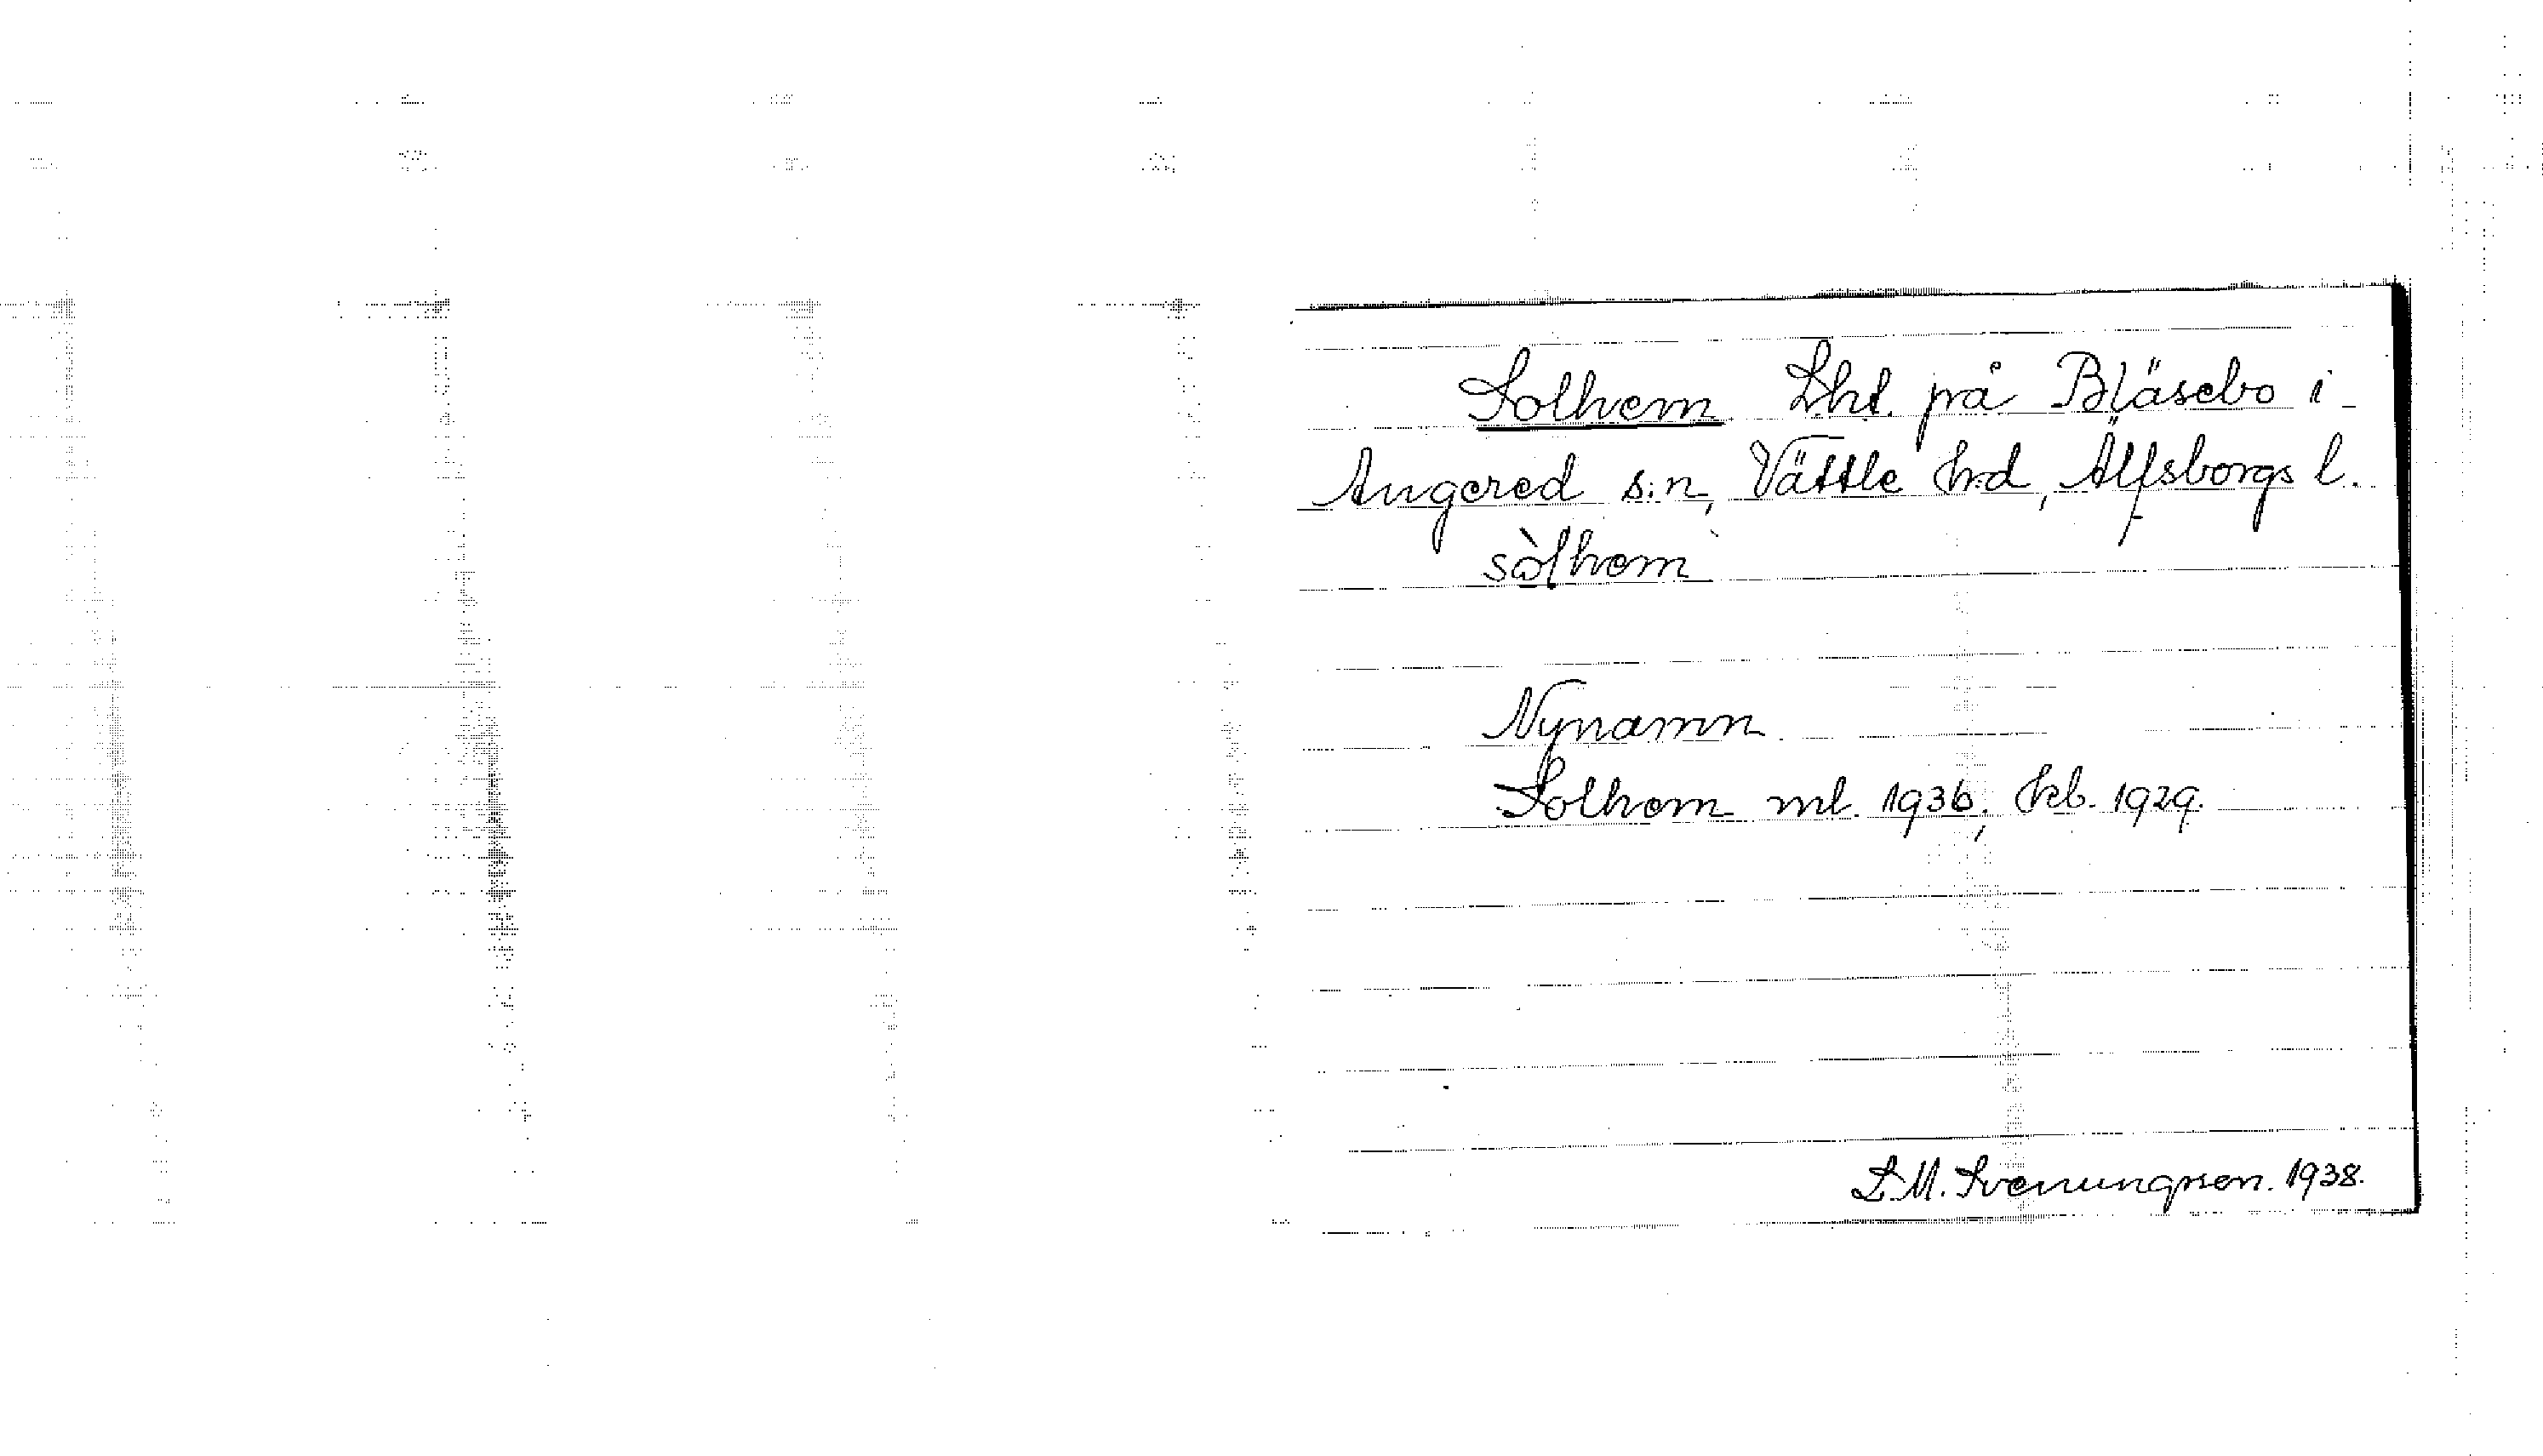 Solhem Lht. på Bläsebo i
Angered s:n, Vättle hd, Älfsborgs l.
sòlhem
Nynamn
Solhem ml. 1936, kb. 1929.
S. M. Svenungsson. 1938.